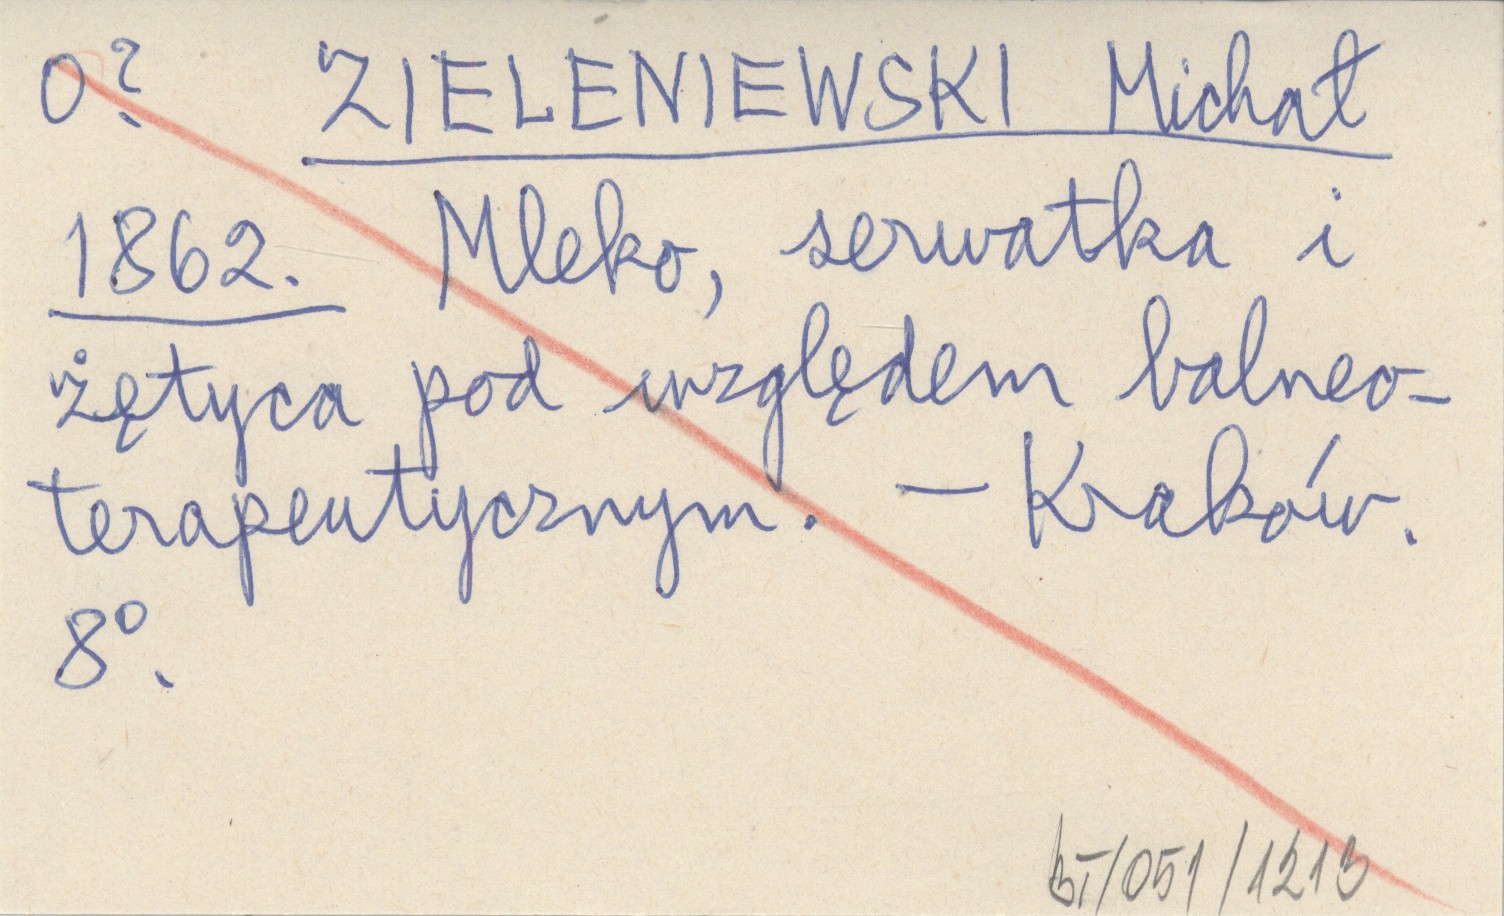 0? ZIELENIEWSKI Michał
1862. Mleko, serwatka i
żętyca pod względem balneo-
terapeutycznym. — Kraków.
8°.
/051/1213